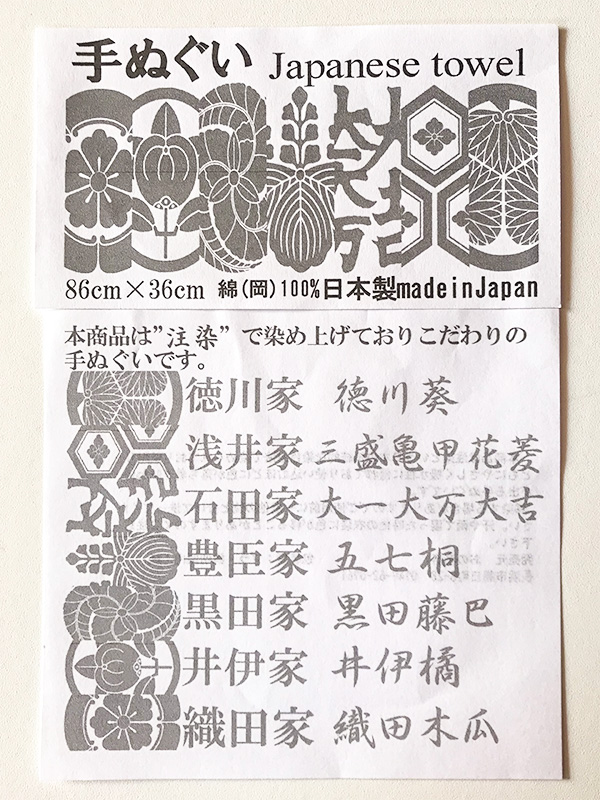 手ぬぐい Japanese towel
86cm×36cm 綿(岡)100%日本製madeinJapan
本商品は”注染”で染め上げておりこだわりの
手ぬぐいです。
徳川家 徳川葵
浅井家 三盛亀甲花菱
石田家 大一大万大吉
豊臣家 五七桐
黒田家 黒田藤巴
井伊家 井伊橘
織田家 織田木瓜